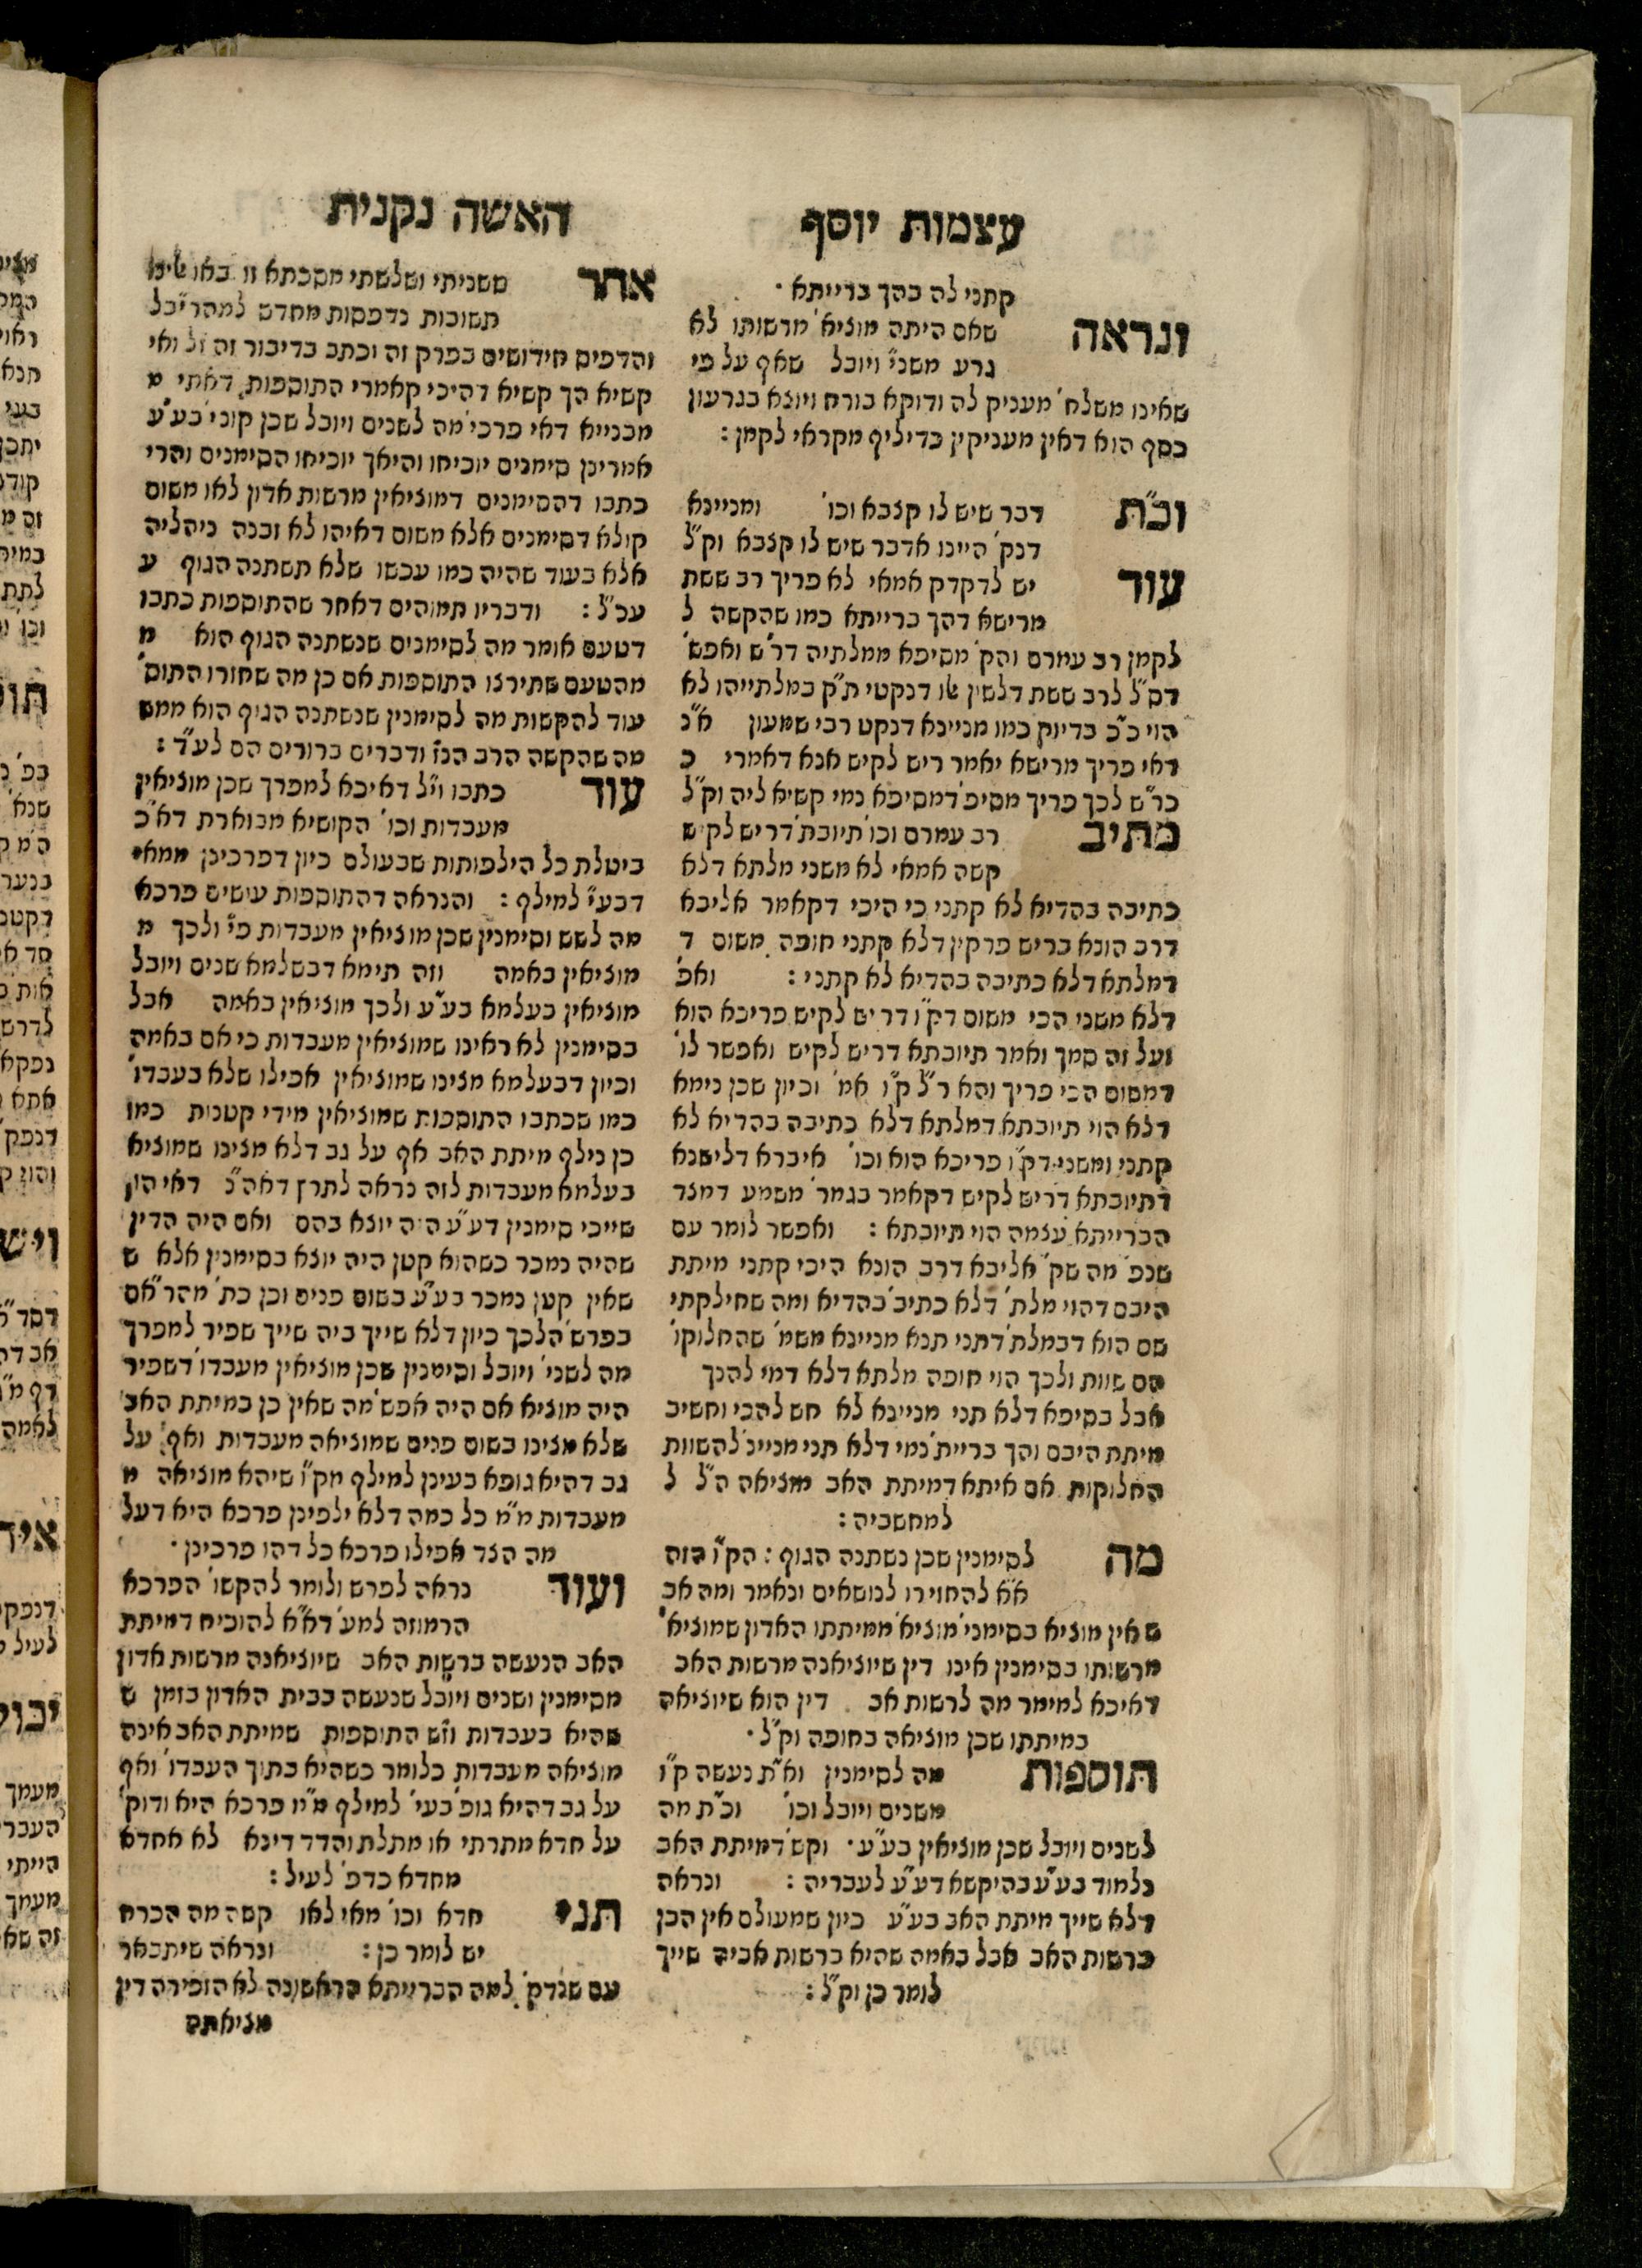 עצמות יוסף
האשה נקנית
קתני לה בהך ברייתא ·
ונראה שאם היתה מוציא' מרשותו לא
גרע משני' ויובל שאף על פי
שאינו משלח' מעניק לה ודוקא בורח ויוצא בגרעון
כסף הוא דאין מעניקין כדיליף מקראי לקמן :
וכ"ת דבר שיש לו קצבא וכו' ומניינא
דנק' היינו אדבר שיש לו קצבא וק"ל
עוד יש לדקדק אמאי לא פריך רב ששת
מרישא דהך ברייתא כמו שהקשה ל
לקמן רב עמרם והק' מסיפא ממלתיה דר"ש ואפש'
דס"ל לרב ששת דלשון אלו דנקטי ת"ק במלתייהו לא
הוי כ"כ בדיוק כמו מניינא דנקט רבי שמעון א"נ
דאי פריך מרישא יאמר ריש לקיש אנא דאמרי כ
כר"ש לכך פריך מסיפ' דמסיפא נמי קשיא ליה וק"ל
מתיב רב עמרם וכו' תיובת' דריש לקיש
קשה אמאי לא משני מלתא דלא
כתיבה בהדיא לא קתני כי היכי דקאמר אליבא
דרב הונא בריש פרקין דלא קתני חופה משום ד
דמלתא דלא כתיבה בהדיא לא קתני : ואפ'
דלא משני הכי משום דק"ו דריש לקיש פריכא הוא
ועל זה סמך ואמר תיובתא דריש לקיש ואפשר לו'
דמשום הכי פריך והא ר"ל ק"ו אמ' וכיון שכן נימא
דלא הוי תיובתא דמלתא דלא כתיבה בהדיא לא
קתני ומשני דק"ו פריכא הוא וכו' איברא דלישנא
דתיובתא דריש לקיש דקאמר בגמר' משמע דמצד
הברייתא עצמה הוי תיובתא : ואפשר לומר עם
שנפ' מה שק' אליבא דרב הונא היכי קתני מיתת
היבם דהוי מלת' דלא כתיב' בהדיא ומה שחילקתי
שם הוא דבמלת' דתני תנא מניינא משמ' שהחלוקו'
הם שוות ולכך הוי חופה מלתא דלא דמי להנך
אבל בסיפא דלא תני מניינא לא חש להכי וחשיב
מיתת היבם והך בריית' נמי דלא תני מניינ' להשוות
החלוקות אם איתא דמיתת האב מוציאה ה"ל ל
למחשביה :
מה לסימנין שכן נשתנה הגוף : הק"ו הזה
א"א להחזירו לנושאים ונאמר ומה אב
שאין מוציא בסימני' מוציא' ממיתתו האדון שמוציא'
מרשותו בסימנין אינו דין שיוציאנה מרשות האב
דאיכא למימר מה לרשות אב דין הוא שיוציאה
במיתתו שכן מוציאה בחופה וק"ל ·
תוספות מה לסימנין וא"ת נעשה ק"ו
משנים ויובל וכו' וכ"ת מה
לשנים ויובל שכן מוציאין בע"ע · וקש' דמיתת האב
נלמוד בע"ע בהיקשא דע"ע לעבריה : ונראה
דלא שייך מיתת האב בע"ע כיון שמעולם אין הבן
ברשות האב אבל באמה שהיא ברשות אביה שייך
לומר כן וק"ל :
אחר ששניתי ושלשתי מסכתא זו באו לידינו
תשובות נדפסות מחדש למהרי"בל
והדפים חידושים בפרק זה וכתב בדיבור זה ול ואי
קשיא הך קשיא דהיכי קאמרי התוספות דאתי מ
מבנייא דאי פרכי' מה לשנים ויובל שכן קוני' בע"ע
אמרינן סימנים יוכיחו והיאך יוכיחו הסימנים והרי
כתבו דהסימנים דמוציאין מרשות אדון לאו משום
קולא דסימנים אלא משום דאיהו לא זבנה ניהליה
אלא בעוד שהיה כמו עכשו שלא תשתנה הגוף ע
עכ"ל : ודבריו תמוהים דאחר שהתוספות כתבו
דטעם אומר מה לסימנים שנשתנה הגוף הוא מ
מהטעם שתירצו התוספות אם כן מה שחזרו התוס'
עוד להקשות מה לסימנין שנשתנה הגוף הוא ממש
מה שהקשה הרב הנז' ודברים ברורים הם לע"ד :
עוד כתבו וי"ל דאיכא למפרך שכן מוציאין
מעבדות וכו' הקושיא מבוארת דא"כ
ביטלת כל הילפותות שבעולם כיון דפרכינן ממאי
דבעי' למילף : והנראה דהתוספות עושים פרכא
מה לשש וסימנין שכן מוציאין מעבדות פי' ולכך מ
מוציאין באמה וזה תימא דבשלמא שנים ויובל
מוציאין בעלמא בע"ע ולכך מוציאין באמה אבל
בסימנין לא ראינו שמוציאין מעבדות כי אם באמה
וכיון דבעלמא מצינו שמוציאין אפילו שלא בעבדו'
כמו שכתבו התוספות שמוציאין מידי קטנות כמו
כן נילף מיתת האב אף על גב דלא מצינו שמוציא
בעלמא מעבדות לזה נראה לתרץ דאה"נ דאי הוו
שייכי סימנין דע"ע היה יוצא בהם ואם היה הדין
שהיה נמכר כשהוא קטן היה יוצא בסימנין אלא ש
שאין קטן נמכר בע"ע בשום פנים וכן כת' מהר"אם
בפרש' הלכך כיון דלא שייך ביה שייך שפיר למפרך
מה לשני' ויובל וסימנין שכן מוציאין מעבדו' דשפיר
היה מוציא אם היה אפש' מה שאין כן במיתת האב
שלא מצינו בשום פנים שמוציאה מעבדות ואף על
גב דהיא גופא בעינן למילף מק"ו שיהא מוציאה מ
מעבדות מ"מ כל כמה דלא ילפינן פרכא היא דעל
מה הצד אפילו פרכא כל דהו פרכינן ·
ועוד נראה לפרש ולומר להקשו' הפרכא
הרמוזה למע' דא"א להוכיח דמיתת
האב הנעשה ברשות האב שיוציאנה מרשות אדון
מסימנין ושנים ויובל שנעשה בבית האדון בזמן ש
שהיא בעבדות וז"ש התוספות שמיתת האב אינה
מוציאה מעבדות כלומר כשהיא בתוך העבדו' ואף
על גב דהיא גופ' בעי' למילף מ"מ פרכא היא ודוק'
על חדא מתרתי או מתלת והדר דינא לא אחדא
מחדא כדפ' לעיל :
תני חדא וכו' מאי לאו קשה מה הכרח
יש לומר כן : ונראה שיתבאר
עם שנדק' למה הברייתא הראשונה לא הזכירה דין
מציאתם